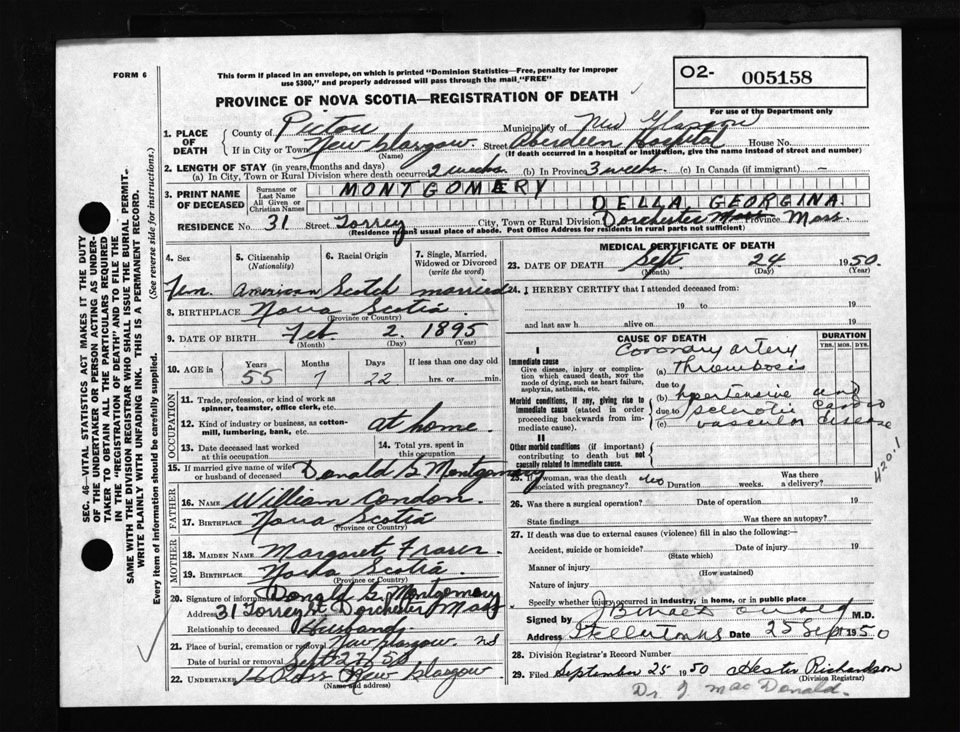 FORM 6
This form if placed in an envelope, on which is printed "Dominion Statistics—Free, penalty for improper
use $300," and properly addressed will pass through the mail "FREE"
O2- 005158
For use of the Department only
PROVINCE OF NOVA SCOTIA—REGISTRATION OF DEATH
1. PLACE OF DEATH
County of Pictou Municipality of New Glasgow
If in City or Town New Glasgow. Street Aberdeen Hospital House No.
(Name) (If death occurred in a hospital or institution, give the name instead of street and number)
2. LENGTH OF STAY (in years, months and days)
(a) In City, Town or Rural Division where death occurred 2 weeks. (b) In Province 3 weeks. (c) In Canada (if immigrant) -
3. PRINT NAME OF DECEASED
Surname or Last Name MONTGOMERY
All Given or Christian Names DELLA GEORGINA
RESIDENCE No. 31 Street Torrey City, Town or Rural Division Dorchester Mass Province Mass.
(Residence means usual place of abode. Post Office Address for residents in rural parts not sufficient)
4. Sex
5. Citizenship (Nationality)
6. Racial Origin
7. Single, Married, Widowed or Divorced (write the word)
Fem. American Scotch married
8. BIRTHPLACE Nova Scotia
(Province or Country)
9. DATE OF BIRTH Feb. 2. 1895
(Month) (Day) (Year)
10. AGE in Years Months Days If less than one day old
55 7 22 hrs. or min.
OCCUPATION
11. Trade, profession, or kind of work as spinner, teamster, office clerk, etc.
12. Kind of industry or business, as cotton-mill, lumbering, bank, etc. at home.
13. Date deceased last worked at this occupation
14. Total yrs. spent in this occupation
15. If married give name of wife or husband of deceased Donald G Montgomery
FATHER
16. NAME William Condon.
17. BIRTHPLACE Nova Scotia
(Province or Country)
MOTHER
18. MAIDEN NAME Margaret Fraser.
19. BIRTHPLACE Nova Scotia.
(Province or Country)
20. Signature of informant Donald G. Montgomery
Address 31 Torrey St Dorchester Mass
Relationship to deceased Husband.
21. Place of burial, cremation or removal New Glasgow. NS
Date of burial or removal Sept 27 50
22. UNDERTAKER New Glasgow
(Name and address)
MEDICAL CERTIFICATE OF DEATH
23. DATE OF DEATH Sept. 24 1950.
(Month) (Day) (Year)
24. I HEREBY CERTIFY that I attended deceased from:
19 to 19
and last saw h alive on 19
CAUSE OF DEATH DURATION
YRS. MOS. DYS.
I
Immediate cause
Give disease, injury or complication which caused death, NOT the mode of dying, such as heart failure, asphyxia, asthenia, etc.
(a) Coronary artery Thrombosis
due to
Morbid conditions, if any, giving rise to immediate cause (stated in order proceeding backwards from immediate cause).
(b) hypertensive and
due to sclerotic cardio
(c) vascular disease
II
Other morbid conditions (if important) contributing to death but not causally related to immediate cause.
420-1
25. If woman, was the death associated with pregnancy? no Duration weeks. Was there a delivery?
26. Was there a surgical operation? Date of operation 19
State findings Was there an autopsy?
27. If death was due to external causes (violence) fill in also the following:
Accident, suicide or homicide? Date of injury 19
(State which)
Manner of injury
(How sustained)
Nature of injury
Specify whether injury occurred in industry, in home, or in public place
Signed by M.D.
Address Date 25 Sept 1950
28. Division Registrar's Record Number
29. Filed September 25 1950 Hester Richardson
(Division Registrar)
Dr J MacDonald.
SEC. 46—VITAL STATISTICS ACT MAKES IT THE DUTY
OF THE UNDERTAKER OR PERSON ACTING AS UNDER-
TAKER TO OBTAIN ALL THE PARTICULARS REQUIRED
IN THE "REGISTRATION OF DEATH" AND TO FILE THE
SAME WITH THE DIVISION REGISTRAR WHO SHALL ISSUE THE BURIAL PERMIT.
WRITE PLAINLY WITH UNFADING INK. THIS IS A PERMANENT RECORD.
Every item of Information should be carefully supplied. (See reverse side for instructions.)